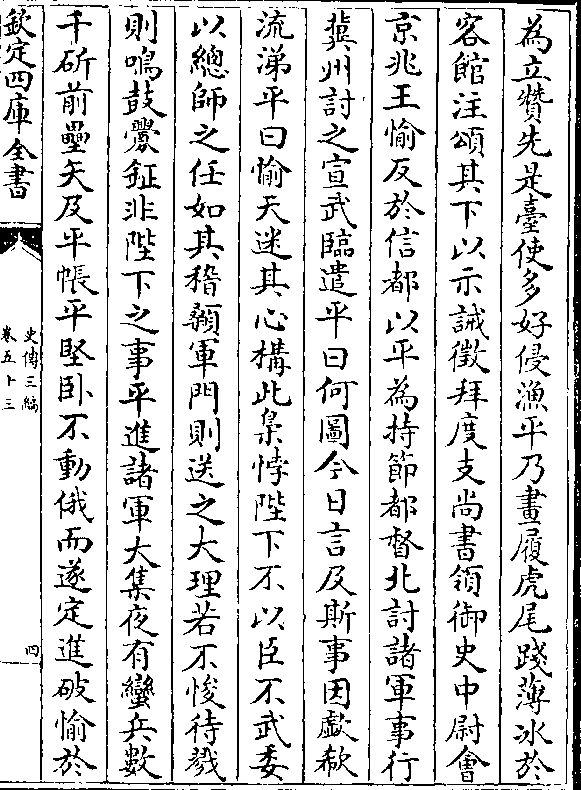 為立贊先是臺使多好侵漁平乃畫履虎尾踐薄冰於
客館注頌其下以示誡徵拜度支尚書領御史中尉會
京兆王愉反於信都以平為持節都督北討諸軍事行
冀州討之宣武臨遣平曰何圖今日言及斯事因歔欷
流涕平曰愉天迷其心構此梟悖陛下不以臣不武委
以總師之任如其稽顙軍門則送之大理若不悛待戮
則鳴鼓釁鉦非陛下之事平進諸軍大集夜有蠻兵數
千斫前壘矢及平帳平堅卧不動俄而遂定進破愉於
欽定四庫全書
史傳三編
卷五十三
四